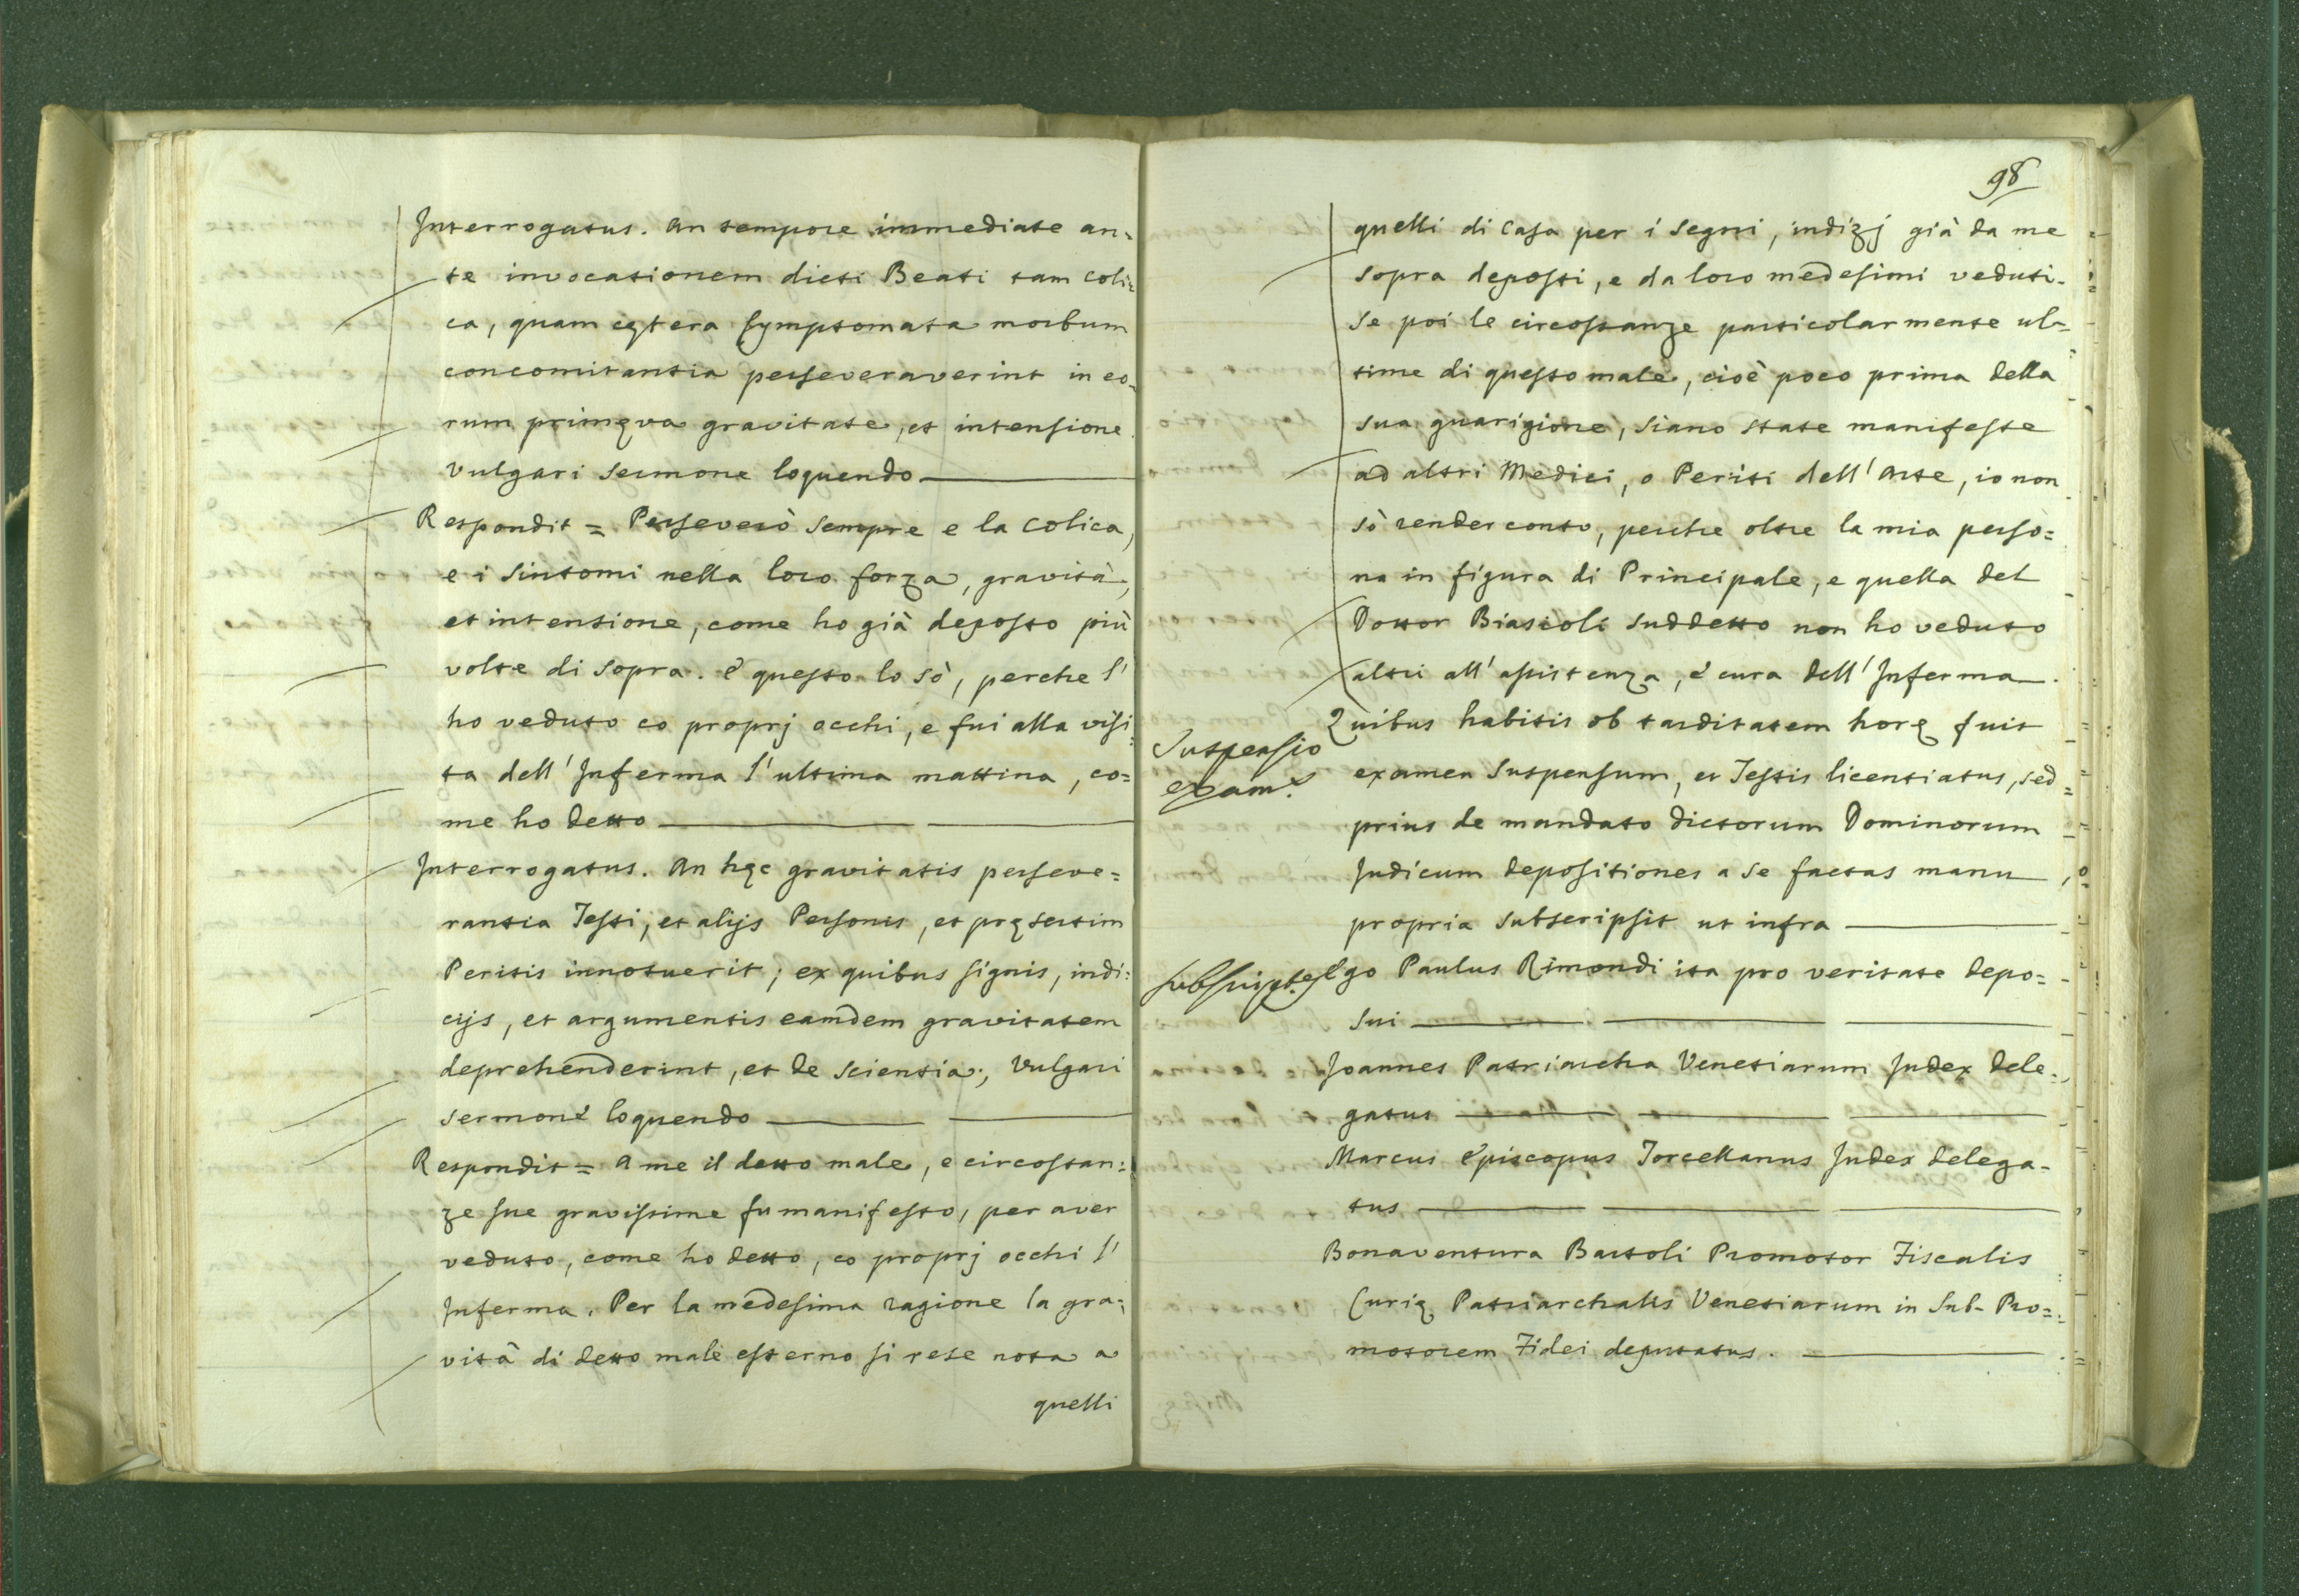 Interrogatus. An tempore immediate an-
te invocationem dicti Beati tam coli-
ca, quam cętera symptomata morbum
concomitantia perseveraverint in eo-
rum primęva gravitate, et intensione
vulgari sermone loquendo
Respondit = Perseverò sempre e la colica,
e i sintomi nella loro forza, gravità,
et intensione, come ho già deposto più
volte di sopra. E questo lo sò, perche l'
ho veduto co proprj occhi, e fui alla visi-
ta dell'Inferma l'ultima mattina, co=
me ho detto
Interrogatus. An hęc gravitatis perseve=
rantia Testi, et alijs Personis, et pręsertim
Peritis innotuerit; ex quibus signis, indi=
cijs, et argumentis eamdem gravitatem
deprehenderint, et de scientia; vulgari
sermone loquendo
Respondit = A me il detto male, e circostan=
ze sue gravissime fu manifesto, per aver
veduto, come ho detto, co proprj occhi l'
Inferma. Per la medesima ragione la gra=
vità di detto male esterno si rese nota a
quelli
98
quelli di Casa per i segni, indizj già da me
sopra deposti, e da loro medesimi veduti.
Se poi le circostanze particolarmente ul=
time di questo male, cioè poco prima della
sua guarigione, siano state manifeste
ad altri Medici, o Periti dell'Arte, io non
sò render conto, perche oltre la mia perso=
na in figura di Principale, e quella del
Dottor Biascoli suddetto non ho veduto
altri all'assistenza, e cura dell'Inferma.
Quibus habitis ob tarditatem horę fuit
Suspensio
exam.s
examen suspensum, et Testis licentiatus, sed
prius de mandato dictorum Dominorum
Judicum depositiones a se factas manu
propria subscripsit ut infra
Subscript.es
Ego Paulus Rimondi ita pro veritate depo=
sui
Joannes Patriarcha Venetiarum Judex dele=
gatus
Marcus Episcopus Torcellanus Judex delega=
tus
Bonaventura Bartoli Promotor Fiscalis
Curię Patriarchalis Venetiarum in Sub-Pro=
motorem Fidei deputatus.